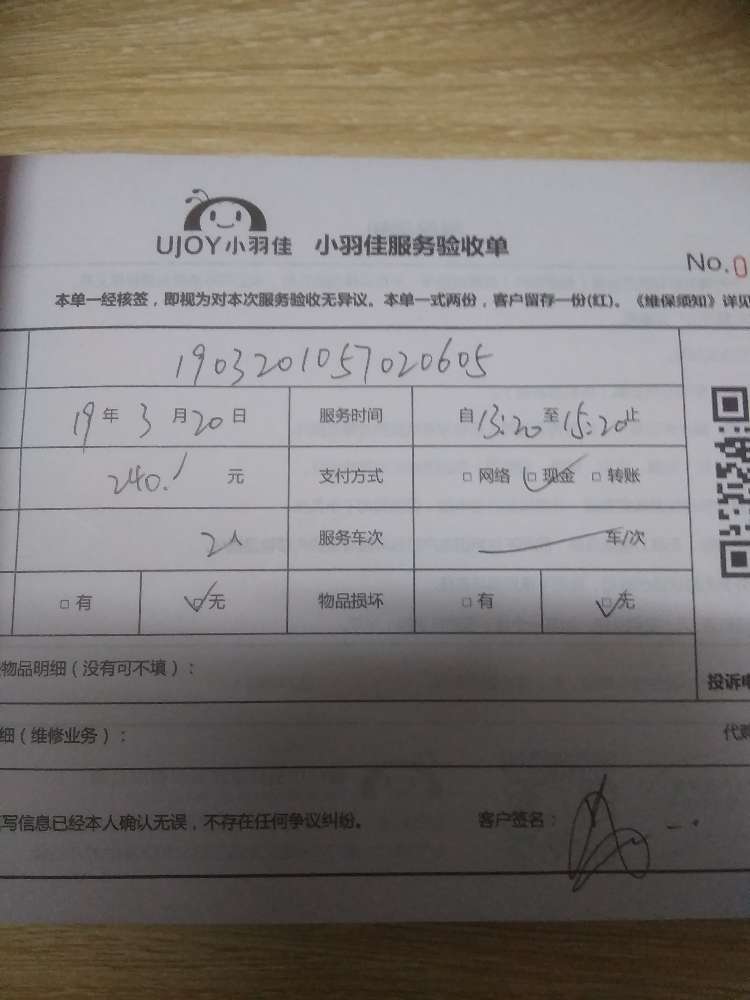 UJOY小羽佳 小羽佳服务验收单
No.0
本单一经核签，即视为对本次服务验收无异议。本单一式两份，客户留存一份(红)。《维保须知》详见
1903201057020605
19年3月20日 服务时间 自13:20至15:20止
240.1元 支付方式 □网络 □现金 □转账
2人 服务车次 车/次
□有 □无 物品损坏 □有 □无
物品明细（没有可不填）：
投诉电
细（维修业务）：
代购
写信息已经本人确认无误，不存在任何争议纠纷。 客户签名：